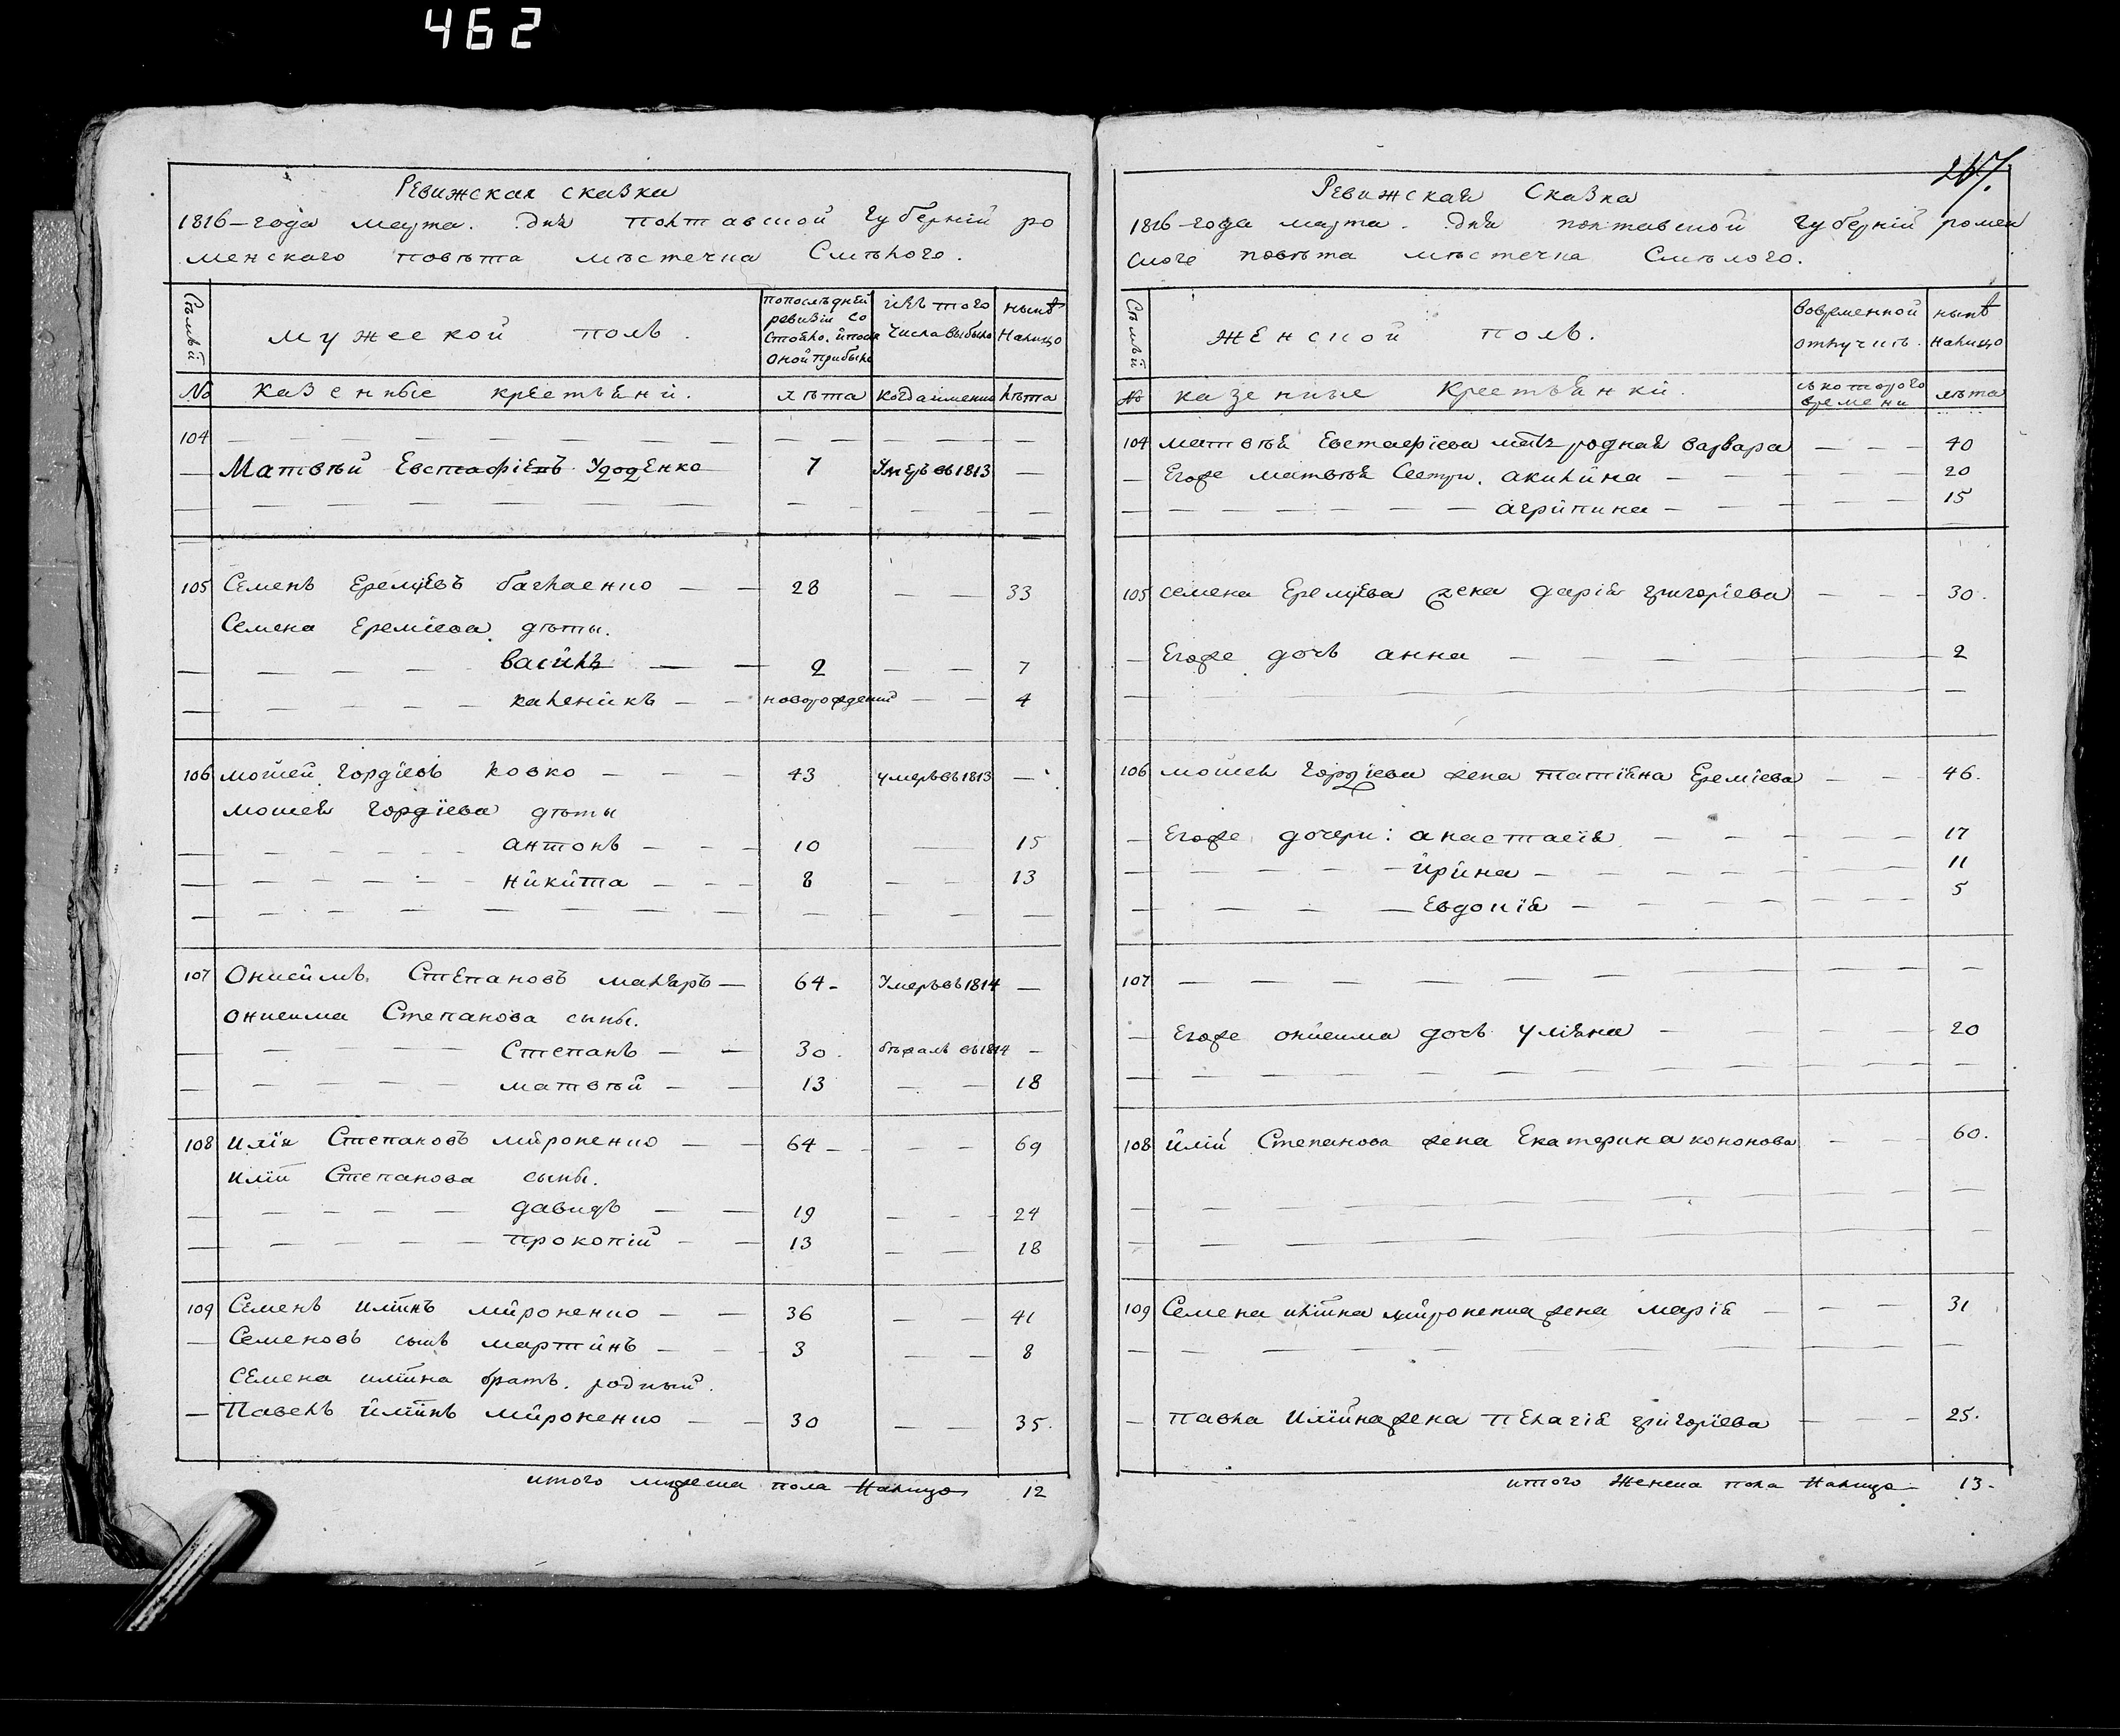 462
Ревижская сказка
1816-года марта. дня полтавской губернїй ро
менскаго повѣта мѣстечка Смѣлого.
Семьѣй
мужеской полъ.
попослѣдней ревизїи состояло. и после оной прибыло
изъ того числа выбыло
нынѣ налицо
№ казенные крестьяни. лѣта когда именно лѣта
104
Матвѣй Евстафїевъ Удоденко 7 Умеръ въ 1813
105 Семенъ Еремїевъ 28 33
Семена Еремїева дѣты.
василь 2 7
каленикъ новорожденій 4
106 мойсей Гордїевъ Ковко 43 умеръ въ 1813
мойсея Гордїева дѣты
антонъ 10 15
никита 8 13
107 Онисимъ Степановъ маляръ 64 Умеръ въ 1814
онисима Степанова сыны.
Степанъ 30. бѣжалъ въ 1814
матвѣй 13 18
108 илїя Степановъ мироненко 64 69
илїи Степанова сыны.
давидъ 19 24
прокопїй 13 18
109 Семенъ илїинъ мироненко 36 41
Семеновъ сынъ мартинъ 3 8
Семена илїина братъ. родный.
Павелъ илїинъ мироненко 30 35.
итого мужеска пола Налицо 12
Ревижская Сказка
1816-года марта. дня полтавской губернїй ромен
ского повѣта мѣстечка Смѣлого.
Семьѣй
женской полъ.
вовременной отлучкѣ.
нынѣ налицо
№ казенные крестьянки. съ которого времени лѣта
104 матвѣя Евстафїева мать родная варвара 40
Егоже матвѣя Сестри. акилина 20
агрипина 15
105 семена Еремїева жена дарїя григорїева 30.
Егоже дочь анна 2
106 мойсея Гордїева жена татїяна Еремїева 46.
Егоже дочери: анастасїя 17
ирина 11
Евдокїя 5
107
Егоже онисима дочь улїяна 20
108 илїи Степанова жена Екатерина кононова 60.
109 Семена илїина мироненка жена марїя 31
павла илїина жена пелагїя григорїева 25.
итого женска пола Налицо 13.